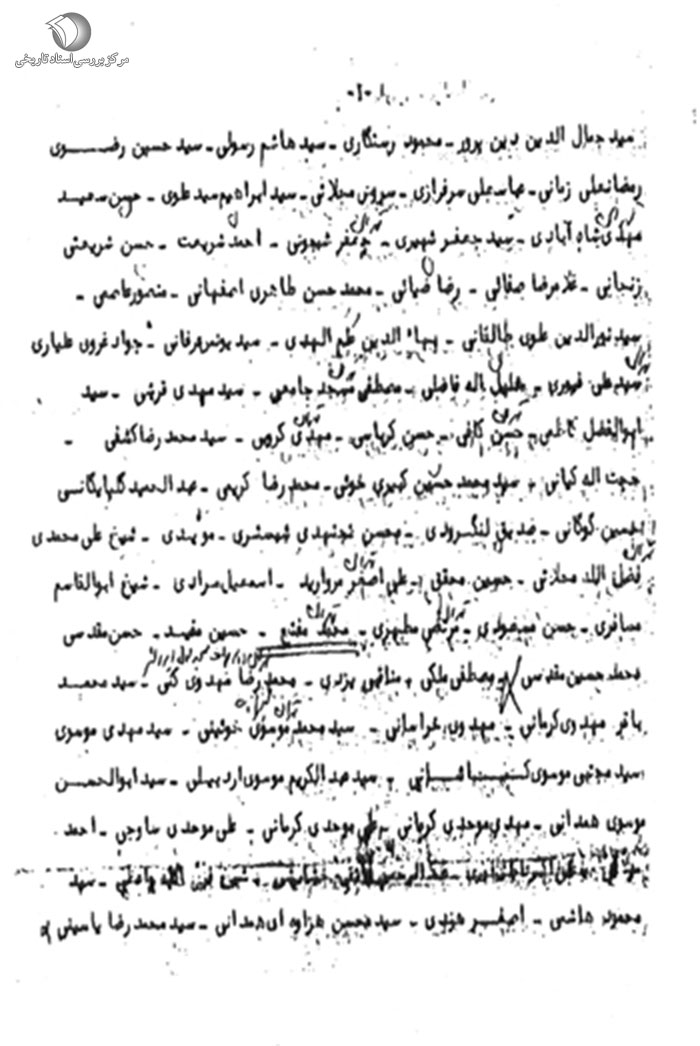 مرکز بررسی اسناد تاریخی
سید جمال الدین دین پرور ـ محمود رستگاری ـ سید هاشم رسولی ـ سید حسین رضوی
رمضانعلی زمانی ـ عباسعلی سرفرازی ـ سروش محلاتی ـ سید ابراهیم سید علوی ـ حسن سعید
مهدی شاه آبادی ـ سید جعفر شبیری ـ جعفر شجونی ـ احمد شریعت ـ حسن شریعتی
تهران
زنجانی ـ غلامرضا صفائی ـ رضا ضیائی ـ محمد حسن طاهری اصفهانی ـ
سید نورالدین علوی طالقانی ـ بهاء الدین علم الهدی ـ سید یونس عرفانی ـ جواد غروی علیاری
تهران
سید علی غیوری ـ خلیل اله فاضلی ـ مصطفی مسجد جامعی ـ سید مهدی قرشی ـ سید
تهران
ابوالفضل کاظمی ـ حسن کافی ـ حسن کرباسی ـ مهدی کروبی ـ سید محمد رضا کشفی ـ
حجت اله کیانی ـ سید محمد حسین کبیری خوئی ـ محمد رضا کریمی ـ عبدالحمید گلپایگانسی
حسین گوگانی ـ صدیق لنگرودی ـ محسن مجتهدی شبستری ـ مویدی ـ شیخ علی محمدی
تهران تهران
فضل الله محلاتی ـ حسین محقق ـ علی اصغر مروارید ـ اسمعیل مرادی ـ شیخ ابوالقاسم
تهران تهران
مسافری ـ حسن مسعودی ـ مرتضی مطهری ـ محمد مفتح ـ حسین مفید ـ حسن مقدسی
محمد حسین مقدسی ـ مصطفی ملکی ـ مناقبی یزدی ـ محمد رضا مهدوی کنی ـ سید محمد
تهران
باقر مهدوی کرمانی ـ مهدوی خراسانی ـ سید محمد موسوی خوئینی ـ سید مهدی موسوی
سید مجتبی موسوی ـ سید عبدالکریم موسوی اردبیلی ـ سید ابوالحسن
موسوی همدانی ـ مهدی موحدی کرمانی ـ علی موحدی کرمانی ـ علی موحدی ساوجی ـ احمد
ـ سید
محمود هاشمی ـ اصغر هندی ـ سید محسن هزاوه ای همدانی ـ سید محمد رضا یاسینی